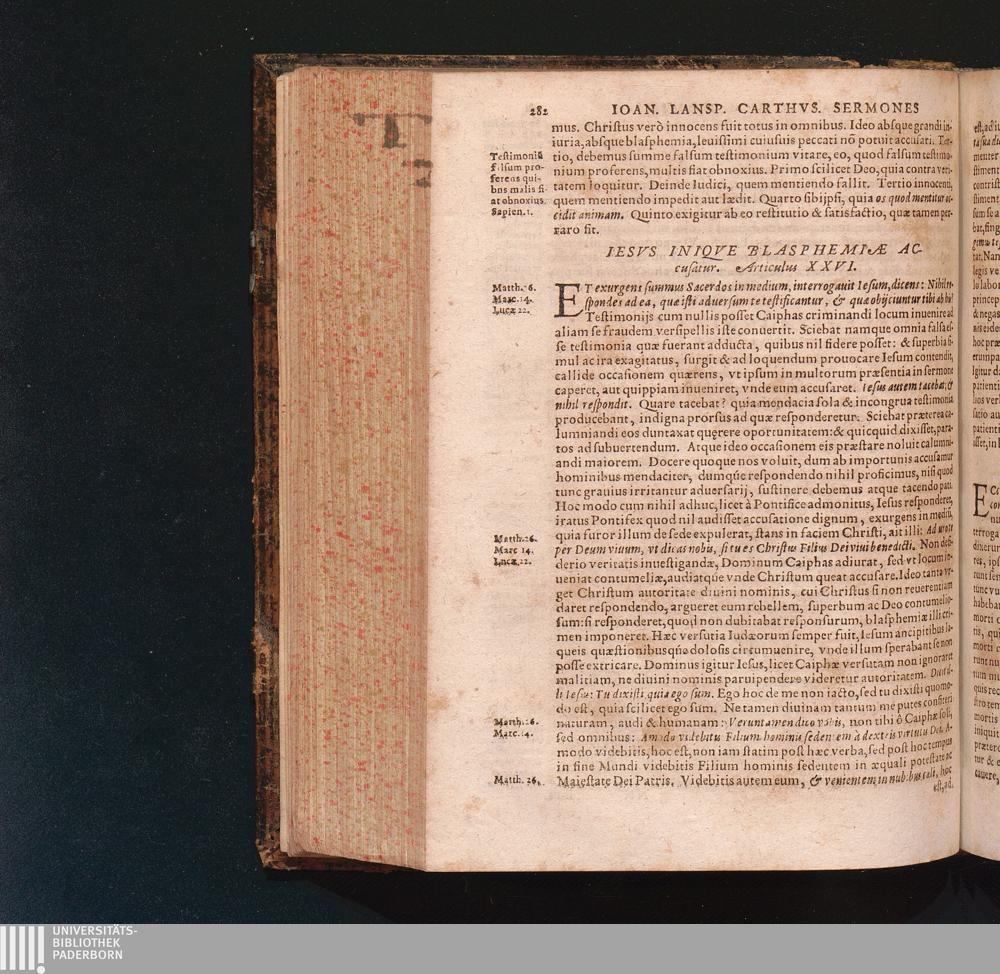 282 IOAN. LANSP. CARTHVS. SERMONES
mus. Christus verò innocens fuit totus in omnibus. Ideo absque grandi in-
iuria, absque blasphemia, leuissimi cuiusuis peccati nō potuit accusari. Ter-
tio, debemus summe falsum testimonium vitare, eo, quod falsum testimo-
nium proferens, multis fiat obnoxius. Primo scilicet Deo, quia contra veri-
tatem loquitur. Deinde Iudici, quem mentiendo fallit. Tertio innocenti,
quem mentiendo impedit aut lædit. Quarto sibijpsi, quia os quod mentitur oc-
cidit animam. Quinto exigitur ab eo restitutio & satisfactio, quæ tamen per-
raro fit.
Testimoniū
falsum pro-
ferens qui-
bns malis fi-
at obnoxius.
Sapien. 1.
IESVS INIQVE BLASPHEMIÆ AC-
cusatur. Articulus XXVI.
Matth. 26.
Marc. 14.
Lucæ 22.
ET exurgens summus Sacerdos in medium, interrogauit Iesum, dicens: Nihil re-
spondes ad ea, quæ isti aduersum te testificantur, & quæ obijciuntur tibi ab his?
Testimonijs cum nullis posset Caiphas criminandi locum inuenire ad
aliam se fraudem versipellis iste conuertit. Sciebat namque omnia falsa es-
se testimonia quæ fuerant adducta, quibus nil fidere posset: & superbia si-
mul ac ira exagitatus, surgit & ad loquendum prouocare Iesum contendit,
callide occasionem quærens, vt ipsum in multorum præsentia in sermone
caperet, aut quippiam inueniret, vnde eum accusaret. Iesus autem tacebat, &
nihil respondit. Quare tacebat? quia mendacia sola & incongrua testimonia
producebant, indigna prorsus ad quæ responderetur. Sciebat præterea ca-
lumniandi eos duntaxat quęrere oportunitatem: & quicquid dixisset, para-
tos ad subuertendum. Atque ideo occasionem eis præstare noluit calumni-
andi maiorem. Docere quoque nos voluit, dum ab importunis accusamur
hominibus mendaciter, dumq́ue respondendo nihil proficimus, nisi quod
tunc grauius irritantur aduersarij, sustinere debemus atque tacendo pati.
Hoc modo cum nihil adhuc, licet à Pontifice admonitus, Iesus responderet,
iratus Pontifex quod nil audisset accusatione dignum, exurgens in mediū,
quia furor illum de sede expulerat, stans in faciem Christi, ait illi: Adiuro te
per Deum viuum, vt dicas nobis, si tu es Christus Filius Dei viui benedicti. Non desi-
derio veritatis inuestigandæ, Dominum Caiphas adiurat, sed vt locum in-
ueniat contumeliæ, audiatq́ue vnde Christum queat accusare. Ideo tanta vr-
get Christum autoritate diuini nominis, cui Christus si non reuerentiam
daret respondendo, argueret eum rebellem, superbum ac Deo contumelio-
sum: si responderet, quod non dubitabat responsurum, blasphemiæ illi cri-
men imponeret. Hæc versutia Iudæorum semper fuit, Iesum ancipitibus la-
queis quæstionibusq́ue dolosis circumuenire, vnde illum sperabant se non
posse extricare. Dominus igitur Iesus, licet Caiphæ versutam non ignoraret
malitiam, ne diuini nominis paruipendere videretur autoritatem. Dixit il-
li Iesu: Tu dixisti, quia ego sum. Ego hoc de me non iacto, sed tu dixisti quomo-
do est, quia scilicet ego sum. Ne tamen diuinam tantum me putes confiteri
naturam, audi & humanam: Veruntamen dico vobis, non tibi ô Caiphæ soli,
sed omnibus: Amodo videbitis Filium hominis sedentem à dextris virtutis Dei. A-
modo videbitis, hoc est, non iam statim post hæc verba, sed post hoc tempus
in fine Mundi videbitis Filium hominis sedentem in æquali potestate ac
Maiestate Dei Patris. Videbitis autem eum, & venientem in nubibus cæli, hoc
est, ad.
Matth. 26.
Marc 14.
Lucæ. 22.
Matth. 26.
Marc. 14.
Matth. 26.
UNIVERSITÄTS-
BIBLIOTHEK
PADERBORN